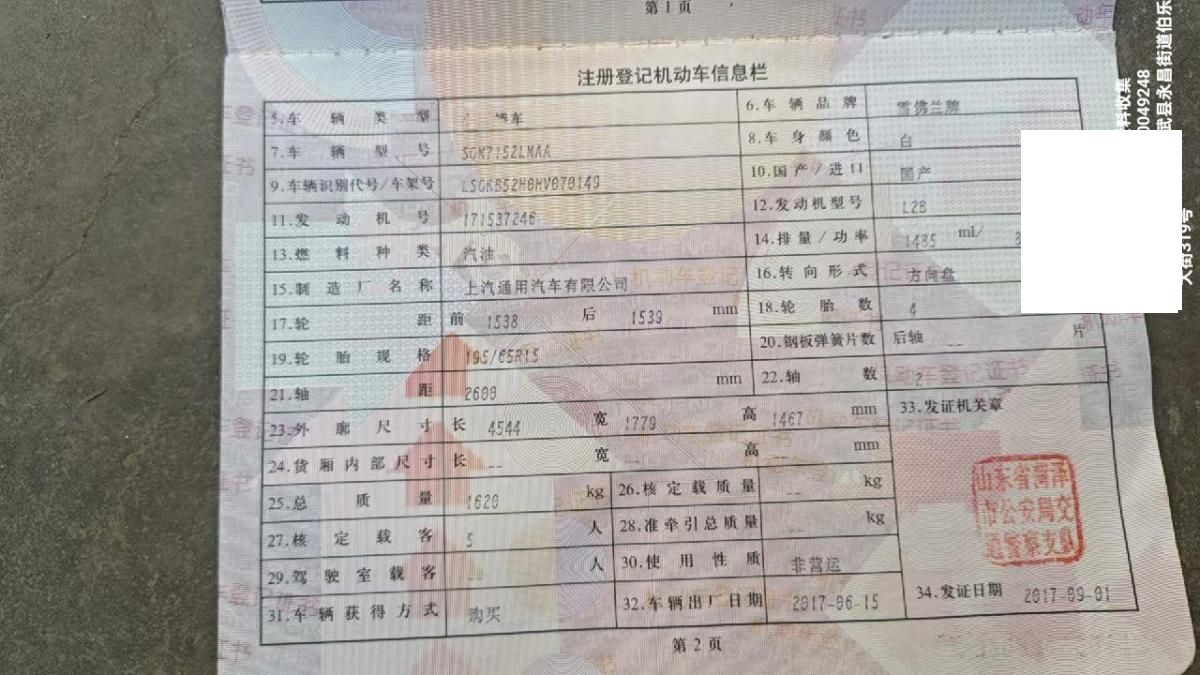 第1页
注册登记机动车信息栏
5.车辆类型 车 6.车辆品牌 雪佛兰牌
7.车辆型号 SGM7152LMAA 8.车身颜色 白
9.车辆识别代号/车架号 10.国产/进口 国产
11.发动机号 171537246 12.发动机型号 L2B
13.燃料种类 汽油 14.排量/功率 1485 ml/
15.制造厂名称 上汽通用汽车有限公司 16.转向形式 方向盘
17.轮距 前 1538 后 1539 mm 18.轮胎数 4
19.轮胎规格 195/65R15 20.钢板弹簧片数 后轴 -- 片
21.轴距 2600 mm 22.轴数 2
23.外廓尺寸 长 4544 宽 1779 高 1467 mm 33.发证机关章
24.货厢内部尺寸 长 -- 宽 -- 高 mm
25.总质量 1620 kg 26.核定载质量 -- kg
山东省菏泽
市公安局交
通警察支队
27.核定载客 5 人 28.准牵引总质量 -- kg
29.驾驶室载客 -- 人 30.使用性质 非营运
31.车辆获得方式 购买 32.车辆出厂日期 2017-06-15 34.发证日期 2017-09-01
第2页
料收集
0049248
武县永昌街道伯乐
大街319号